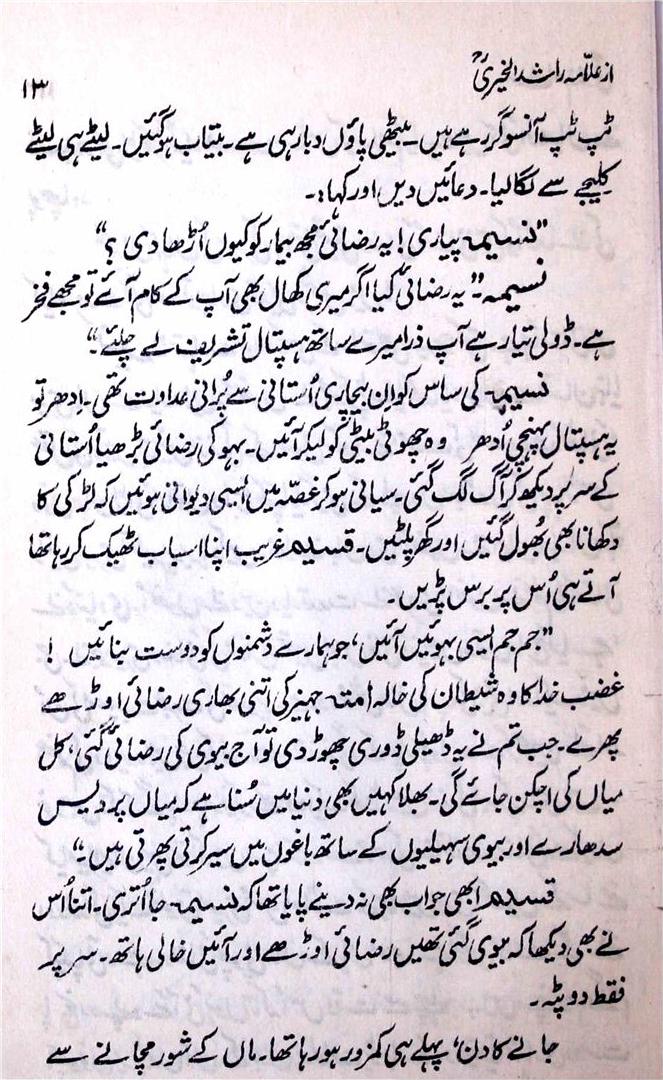 از علامہ راشد الخیریؒ
۱۳
ٹپ ٹپ آنسو گر رہے ہیں۔ بیٹھی پاؤں دبا رہی ہے۔ بیتاب ہوگئیں۔ لیٹے ہی لیٹے
کلیجے سے لگا لیا۔ دعائیں دیں اور کہا:۔
"نسیمہ پیاری! یہ رضائی مجھ بیمار کو کیوں اُڑھا دی ؟"
نسیمہ۔" یہ رضائی کیا اگر میری کھال بھی آپ کے کام آئے تو مجھے فخر
ہے۔ ڈولی تیار ہے آپ ذرا میرے ساتھ ہسپتال تشریف لے چلئے۔"
نسیمہ کی ساس کو اِن بیچاری اُستانی سے پُرانی عداوت تھی۔ اِدھر تو
یہ ہسپتال پہنچی اُدھر وہ چھوٹی بیٹی کو لیکر آئیں۔ بہو کی رضائی بڑھیا اُستانی
کے سر پر دیکھ کر آگ لگ گئی۔ سیانی ہوکر غصّہ میں ایسی دیوانی ہوئیں کہ لڑکی کا
دکھانا بھی بھُول گئیں اور گھر پلٹیں۔ قسیم غریب اپنا اسباب ٹھیک کر رہا تھا
آتے ہی اُس پر برس پڑیں۔
"جم جم ایسی بہوئیں آئیں، جو ہمارے دشمنوں کو دوست بنائیں !
غضب خدا کا وہ شیطان کی خالہ امتہ جہیز کی اتنی بھاری رضائی اوڑھے
پھرے۔ جب تم نے یہ ڈھیلی ڈوری چھوڑ دی تو آج بیوی کی رضائی گئی، کل
میاں کی اچکن جائے گی۔ بھلا کہیں بھی دنیا میں سُنا ہے کہ میاں پردیس
سدھارے اور بیوی سہیلیوں کے ساتھ باغوں میں سیر کرتی پھرتی ہیں۔"
قسیم ابھی جواب بھی نہ دینے پایا تھا کہ نسیمہ جا اُتری۔ اتنا اُس
نے بھی دیکھا کہ بیوی گئی تھیں رضائی اوڑھے اور آئیں خالی ہاتھ۔ سر پر
فقط دوپٹہ۔
جانے کا دن، پہلے ہی کمزور ہو رہا تھا۔ ماں کے شور مچانے سے